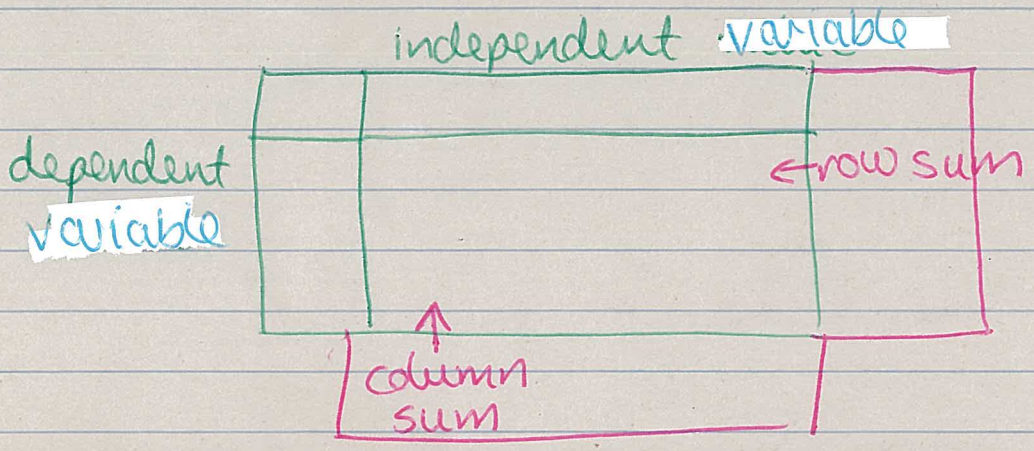 independent variable
dependent
variable
←row sum
↑
column
sum